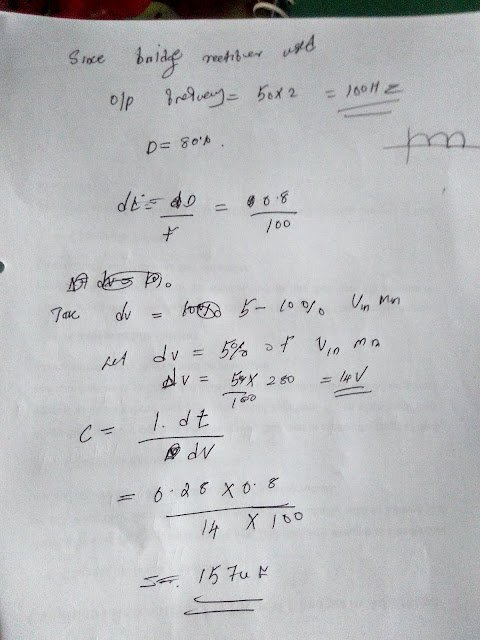 Since bridge rectifier used
o/p frequency = 50x2 = 100Hz
D = 80%.
dt = D/f = 0.8/100
Take dv = 5-10% Vin mn
Let dv = 5% of Vin mn
dv = 5/100 x 280 = 14V
C = I. dt / dv
= 0.28 x 0.8 / 14 x 100
157uF